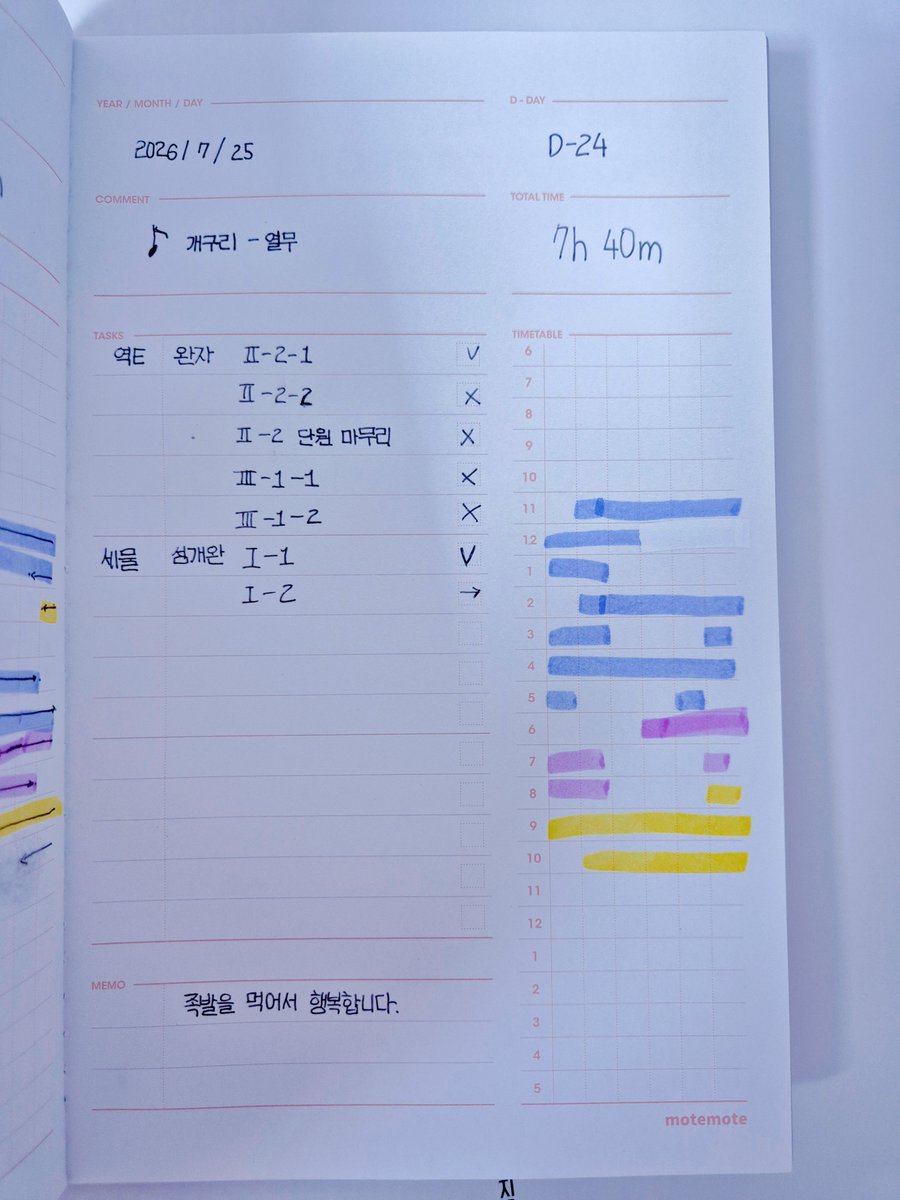 YEAR / MONTH / DAY
2026/7/25
D - DAY
D-24
COMMENT
♪ 개구리 - 열무
TOTAL TIME
7h 40m
TASKS
역E 완자 Ⅱ-2-1 V
Ⅱ-2-2 X
Ⅱ-2 단원 마무리 X
Ⅲ-1-1 X
Ⅲ-1-2 X
세물 성개완 Ⅰ-1 V
Ⅰ-2 →
MEMO
족발을 먹어서 행복합니다.
TIMETABLE
6
7
8
9
10
11
12
1
2
3
4
5
6
7
8
9
10
11
12
1
2
3
4
5
motemote